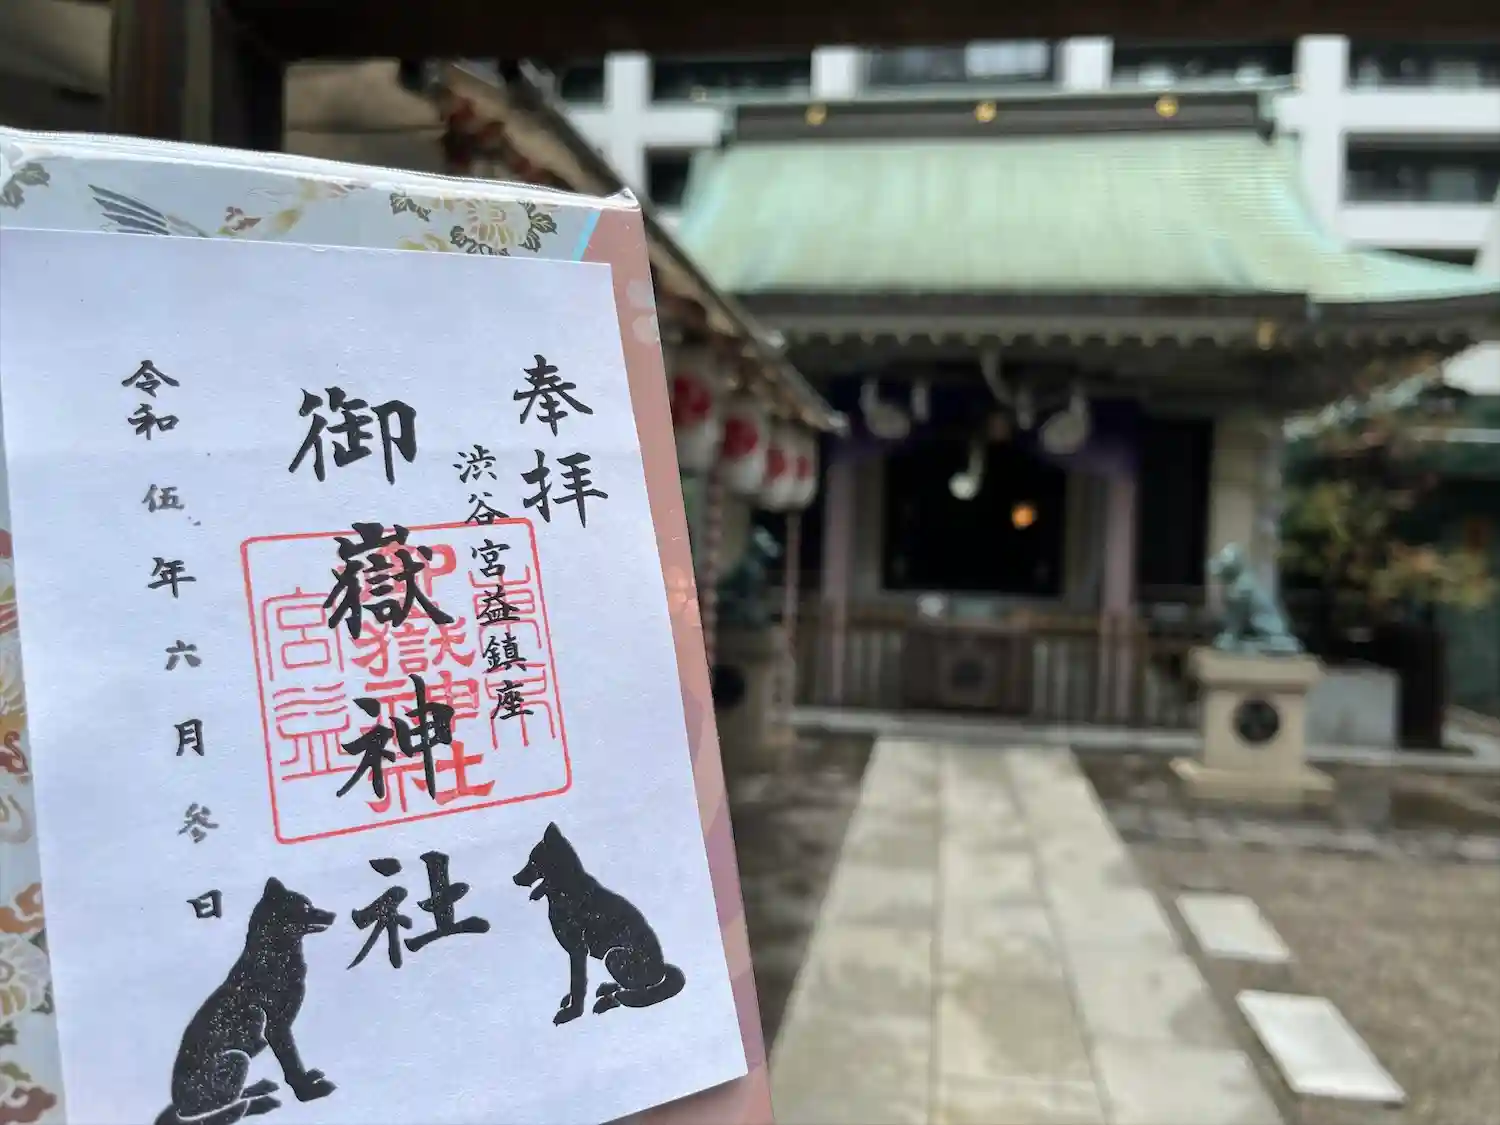 奉拝
渋谷宮益鎮座
御嶽神社
令和伍年六月参日
東京
御嶽神社
宮益